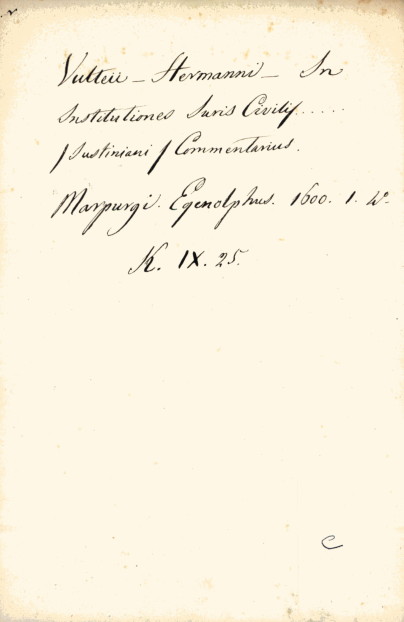 Vulteii - Hermanni - In
Institutiones Juris Civilis.....
/Justiniani/ Commentarius.
Marpurgi. Egenolphus. 1600. 1. 4º.
K. IX. 25.
C